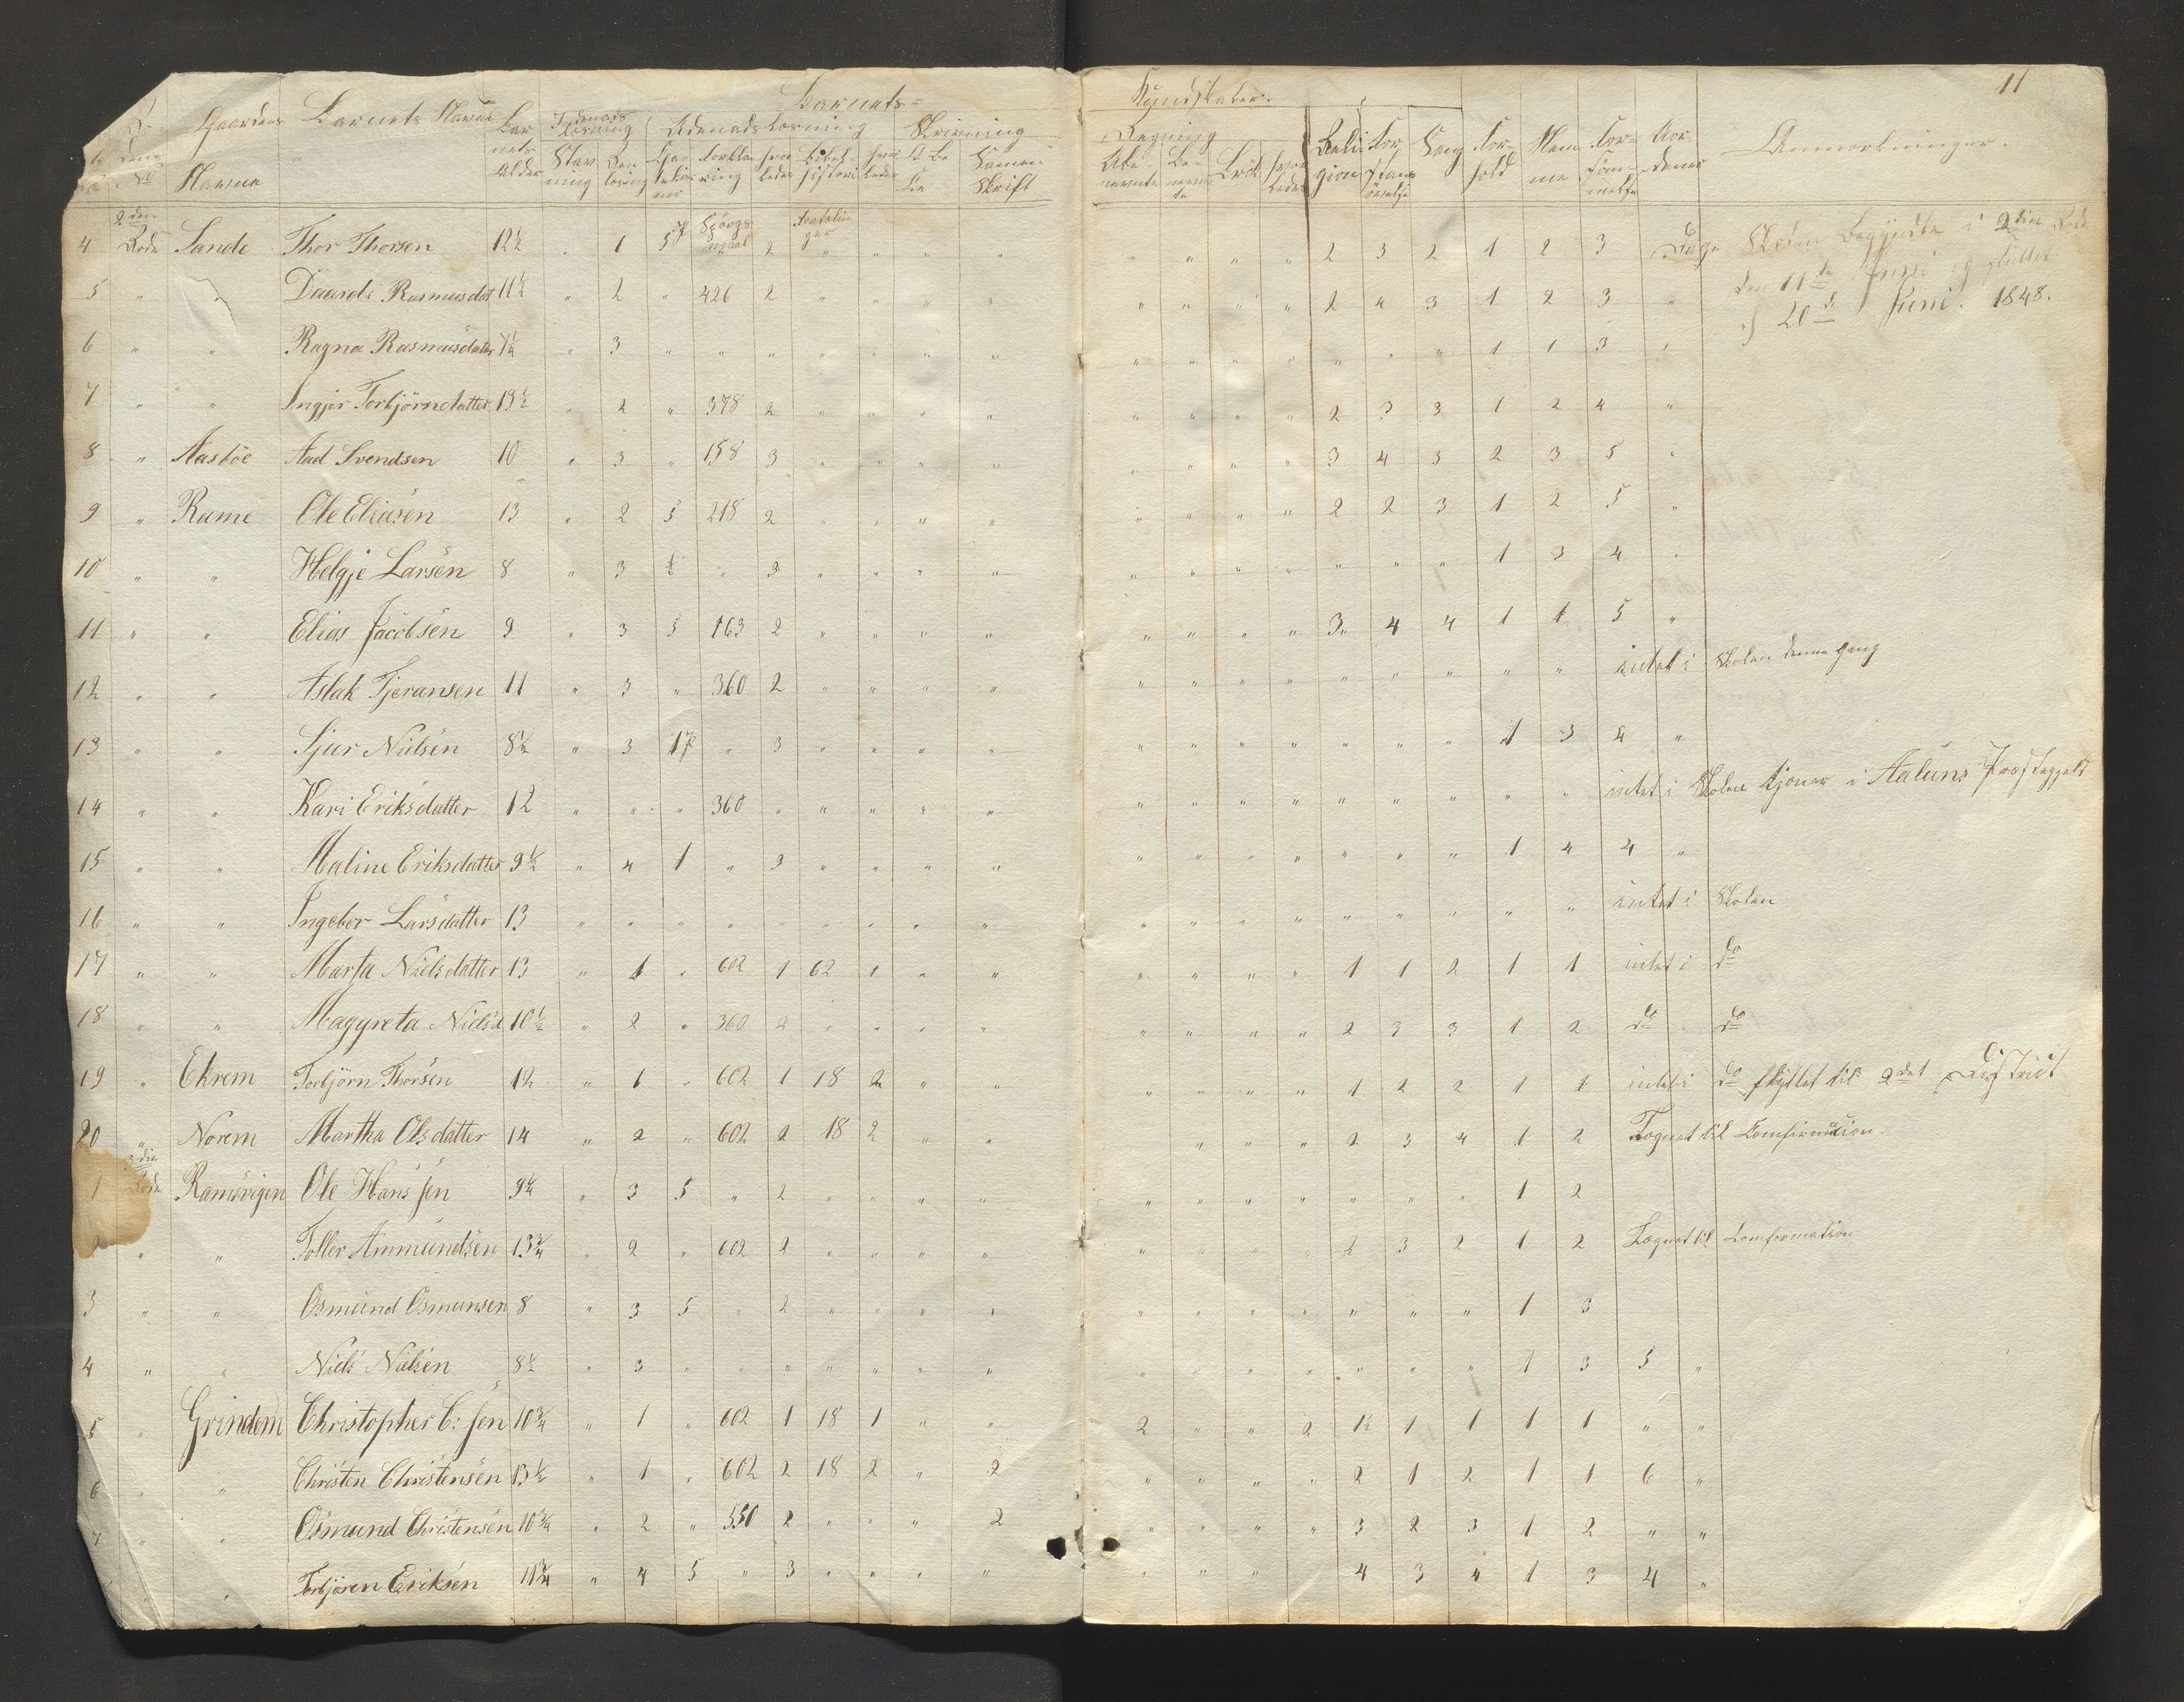 11
Barnets=
Kundskaber.
Gaardens Barnets Navne Barnets Alder Indenads Læsning Udenads Læsning Skrivning
Navne Stavning Catekismus Forklaring hvorledes Bibelhistorie hvorledes Sammenskrift
Regning Religion Forstandsøvelse Sang Forhold Nemme Forsømmelse Anmærkninger.
Ubenævnte Benævnte Brøk hvorledes
4 2den Rode Sande Thor Thorsen 12½ " 1 5 p Spørgsmaal " 2 Fortælinger " " " " " " " " 2 3 2 1 2 3 Dage Skolen Begyndte i 2den Rode
den 11te Juni og sluttet
5 " " Daarde Rasmusdat 11½ " 2 " 426 2 " " " " " " " " 2 4 3 1 2 3 "
d 20de Juni. 1848.
6 " " Ragna Rasmusdatter 7¼ " 3 " " " " " " " " " " " " " " 1 1 3 "
7 " " Ingjer Torbjörndatter 13½ " 2 " 378 2 " " " " " " " " 2 3 3 1 2 4 "
8 " Aasböe Aad Svendsen 10 " 3 " 158 3 " " " " " " " " 3 4 3 2 3 5 "
9 " Rame Ole Eliasen 13 " 2 5 218 2 " " " " " " " " 2 2 3 1 2 5 "
10 " " Helgje Larsen 8 " 3 ½ " 3 " " " " " " " " " " " 1 3 4 "
11 " " Elias Jacobsen 9 " 3 5 163 2 " " " " " " " " 3 4 4 1 1 5 "
12 " " Aslak Tjeransen 11 " 3 " 360 2 " " " " " " " " " " " " " intet i Skolen denne Gang
13 " " Sjur Nielsen 8½ " 3 1 p " 3 " " " " " " " " " " " 1 3 4 "
14 " " Kari Eriksdatter 12 " " " 360 " " " " " " " " " " " " " " intet i Skolen tjener i Aaluns Præstegjeld
15 " " Maline Eriksdatter 9½ " 4 1 " 3 " " " " " " " " " " " 1 4 4 "
16 " " Ingebor Larsdatter 13 " " " " " " " " " " " " " " " " " " intet i Skolen
17 " " Marta Nielsdatter 13 " 1 " 602 1 62 1 " " " " " " 1 1 2 1 1 intet i do
18 " " Maggreta Nielsd 10½ " 2 " 360 2 " " " " " " " " 2 3 3 1 2 do " do
19 " Ekrem Torbjörn Thorsen 12 " 1 " 602 1 18 2 " " " " " " 1 2 2 1 1 intet i do flyttet til 2det District
20 " Norem Martha Olsdatter 14 " 2 " 602 2 18 2 " " " " " 2 3 4 1 2 Tegnet til Comfirmation.
1 3die Rode Ramsvigen Ole Hanssen 9¼ " 3 5 " 2 " " " " " " " " " " " 1 2
" " Toller Ammundsen 13¾ " 2 " 602 2 " " " " " " " " 2 3 2 1 2 Tegnet til Comformation
3 " " Osmund Osmunsen 8 " 3 5 " 2 " " " " " " " " " " " 1 3
4 " " Niels Nielsen 8½ " 3 " " " " " " " " " " " " " " 1 3 5 "
5 " Grindem Christopher C: sen 10¾ " 1 " 602 1 18 1 " " 2 " " 2 1½ 1 1 1 1 " "
6 " " Christen Christensen 13½ " 1 " 602 2 18 2 " 2 " " " " 2 1 2 1 1 6 "
7 " " Osmund Christensen 10¾ " 2 " 550 2 " " " 2 " " " " 3 2 3 1 2 " "
" " Torbjören Eriksen 11¾ " 4 5 " 3 " " " " " " " 4 3 4 1 3 4 "